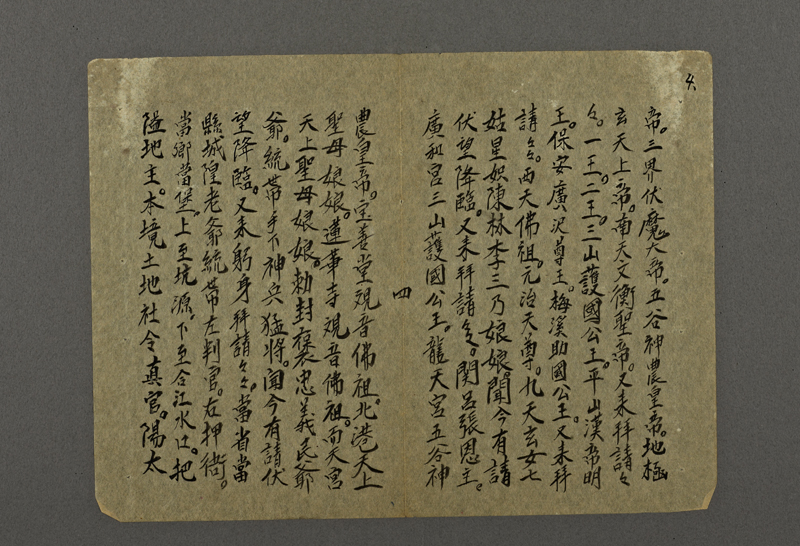 4.
帝。三界伏魔大帝。五谷神農皇帝。地極
玄天上帝。南天文衡聖帝。又来拜請々
々。一王。二王。三山護國公王。平山漢帝明
王。保安廣沢尊王。梅溪助國公王。又来拜
請々。西天佛祖。元治天尊。九天玄女七
姑星娘陳林李三乃娘娘。聞今有請
伏望降臨。又来拜請々。関呂張恩主。
廣和宮三山護國公王。龍天宮五谷神
四
農皇帝。宝善堂观音佛祖。北港天上
聖母娘娘。蓮華寺观音佛祖。而天宮
天上聖母娘娘。勅封褒忠義民爺
爺。統帶手下神兵猛將。聞今有請伏
望降臨。又来躬身拜請々々。當省當
縣城隍老爺統帶左判官。右押衙。
當鄉當堡。上至坑源。下至合江水口。把
隘地主。本境土地社令真官。陽太